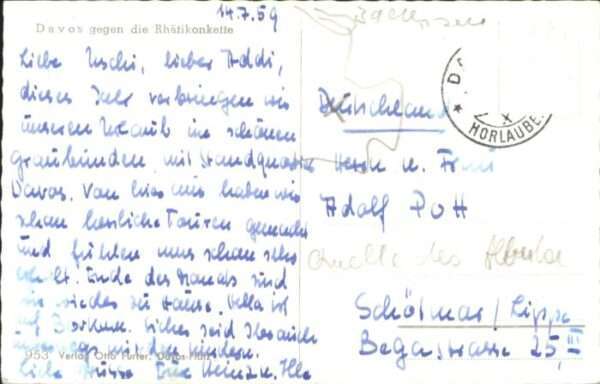 14.7.59
Davos gegen die Rhätikonkette
Liebe Uschi, lieber Addi,
dieses Jahr verbringen wir
unseren Urlaub im schönen
Graubünden mit Standquartier
Davos. Von hier aus haben wir
schon herrliche Touren gemacht
und fühlen uns schon sehr
erholt. Ende des Monats sind
wir wieder zu Hause. ist
auf Borkum. seid Ihr auch
mit den Kindern.
Liebe Grüsse Eure Heinz u.
953 Verlag Otto Furter, Davos-Platz
HORLAUBEN
Deutschland
Herrn u. Frau
Adolf Pott
Quelle des Albula
Schötmar / Lippe
Begastrasse 25, III